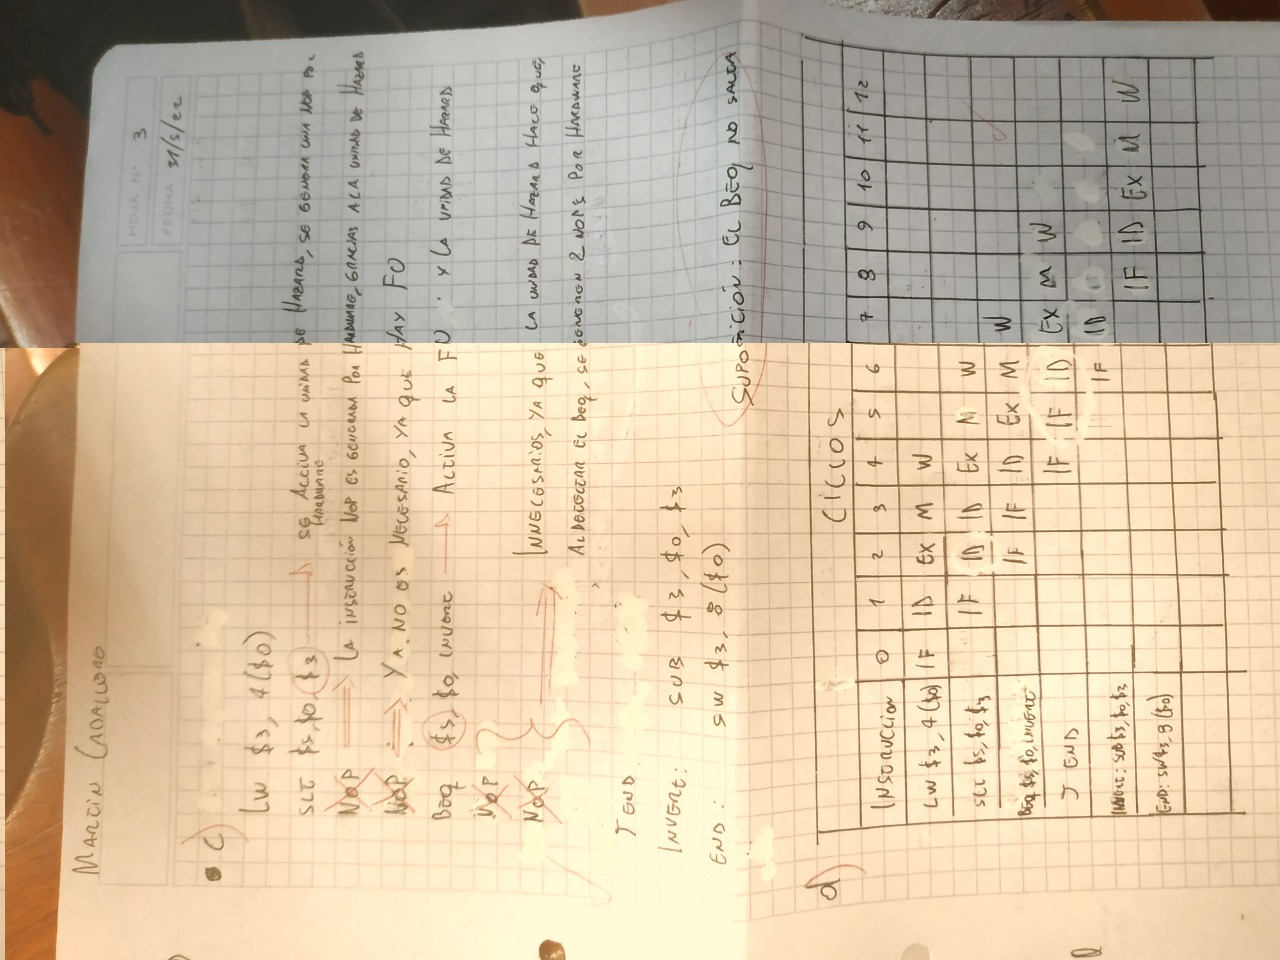 MARTIN
HOJA N° 3
FECHA 31/5/22
C)
LW $3, 4($0)
SLT $5, $0, $3 → SE ACTIVA LA UNIDAD DE HAZARD, SE GENERA UNA NOP POR
HARDWARE
NOP ⇒ LA INSTRUCCIÓN NOP ES GENERADA POR HARDWARE, GRACIAS A LA UNIDAD DE HAZARD
NOP ⇒ YA NO ES NECESARIO, YA QUE HAY FU
BEQ $5, $0, INVERT → ACTIVA LA FU x LA UNIDAD DE HAZARD
NOP
NOP ⇒ INNECESARIOS, YA QUE LA UNIDAD DE HAZARD HACE QUE,
AL DETECTAR EL BEQ, SE GENEREN 2 NOPS POR HARDWARE
J END
INVERT: SUB $3, $0, $3
END: SW $3, 8($0)
SUPOSICIÓN: EL BEQ NO SALTA
d)
CICLOS
INSTRUCCION 0 1 2 3 4 5 6 7 8 9 10 11 12
LW $3, 4($0) IF ID EX M W
SLT $5, $0, $3 IF ID ID EX M W
BEQ $5, $0, INVERT IF IF ID EX M W
J END IF IF ID EX M W
INVERT: SUB $3, $0, $3 IF ID
END: SW $3, 8($0) IF ID EX M W